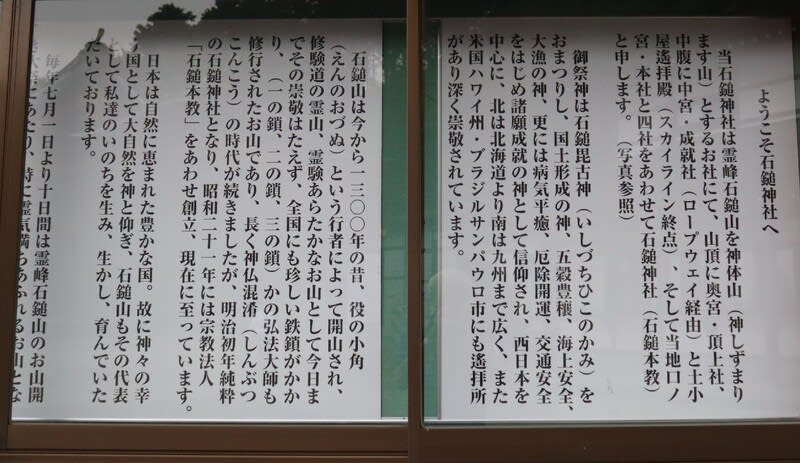 ようこそ石鎚神社へ
当石鎚神社は霊峰石鎚山を神体山（神しずまり
ます山）とするお社にて、山頂に奥宮・頂上社、
中腹に中宮・成就社（ロープウェイ経由）と土小
屋遙拝殿（スカイライン終点）、そして当地口ノ
宮・本社と四社をあわせて石鎚神社（石鎚本教）
と申します。（写真参照）
御祭神は石鎚毘古神（いしづちひこのかみ）を
おまつりし、国土形成の神、五穀豊穣、海上安全、
大漁の神、更には病気平癒、厄除開運、交通安全
をはじめ諸願成就の神として信仰され、西日本を
中心に、北は北海道より南は九州まで広く、また
米国ハワイ州・ブラジルサンパウロ市にも遙拝所
があり深く崇敬されています。
石鎚山は今から一三〇〇年の昔、役の小角
（えんのおづぬ）という行者によって開山され、
修験道の霊山、霊験あらたかなお山として今日ま
でその崇敬はたえず、全国にも珍しい鉄鎖がかか
り、（一の鎖、二の鎖、三の鎖）かの弘法大師も
修行されたお山であり、長く神仏混淆（しんぶつ
こんこう）の時代が続きましたが、明治初年純粋
の石鎚神社となり、昭和二十一年には宗教法人
「石鎚本教」をあわせ創立、現在に至っています。
日本は自然に恵まれた豊かな国。故に神々の幸
う国として大自然を神と仰ぎ、石鎚山もその代表
として私達のいのちを生み、生かし、育んでいた
だいております。
毎年七月一日より十日間は霊峰石鎚山のお山開
大祭にあたり、特に霊気満ちあふれるお山とな